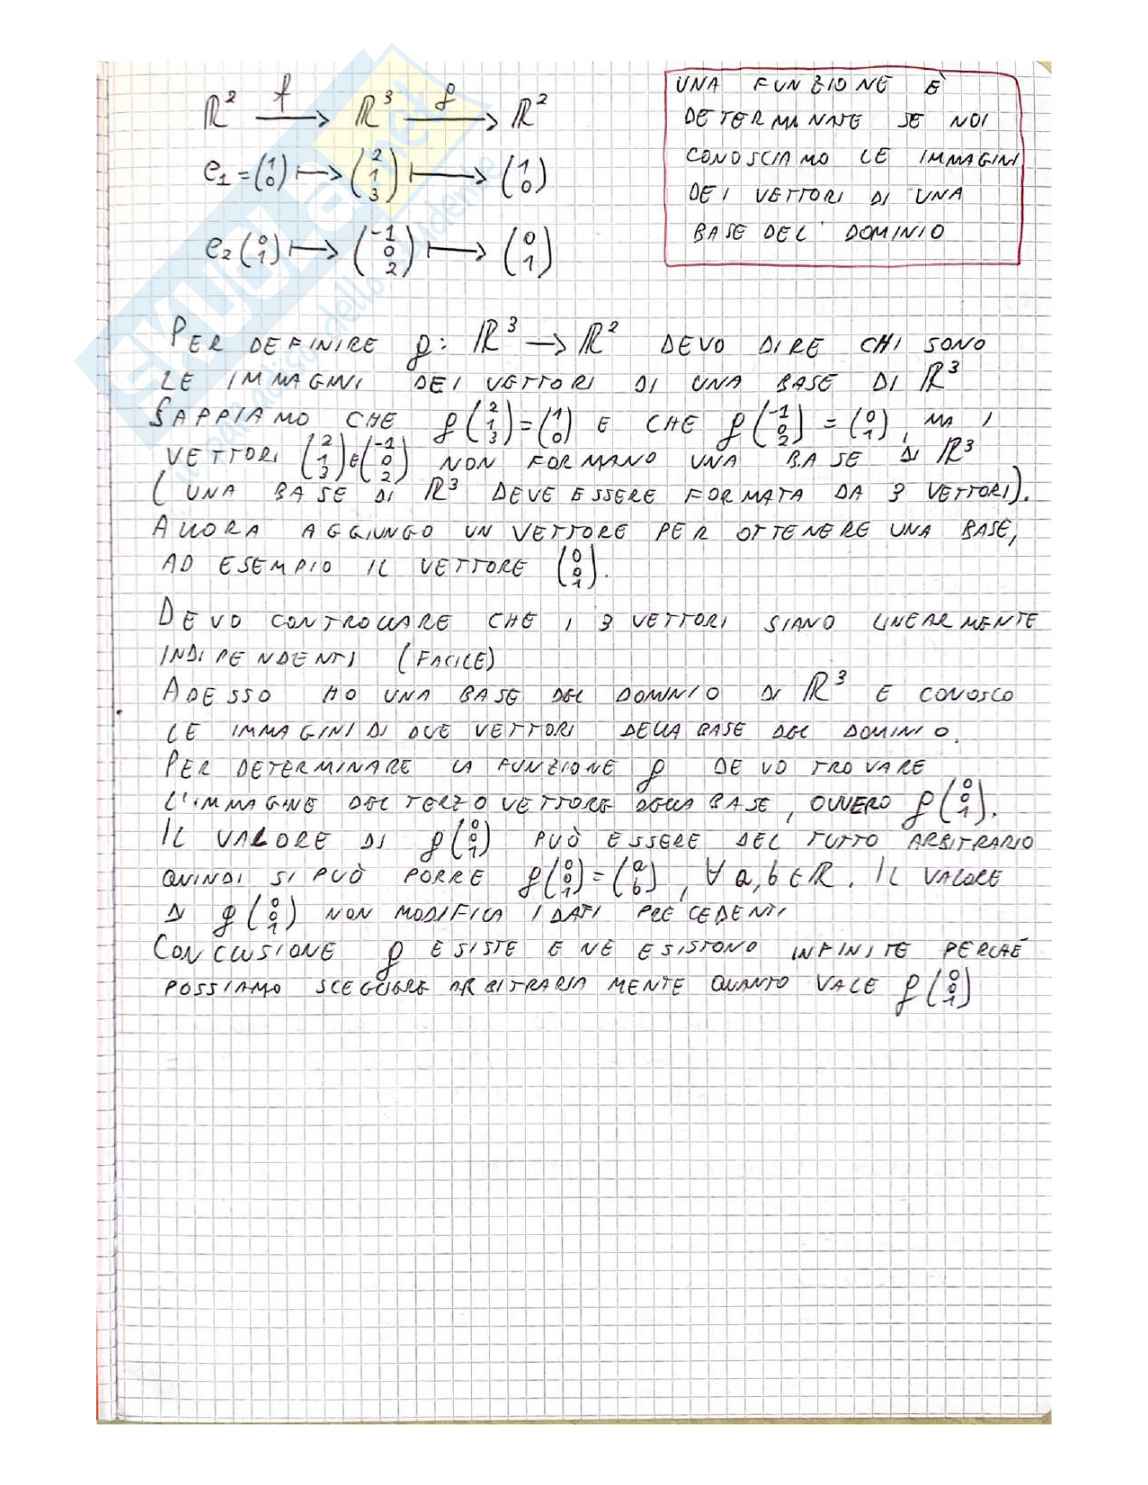 ℝ² —f→ ℝ³ —g→ ℝ²
e₁ = (1 0) ↦ (2 1 3) ↦ (1 0)
e₂ (0 1) ↦ (-1 0 2) ↦ (0 1)
UNA FUNZIONE È
DETERMINATE SE NOI
CONOSCIAMO LE IMMAGINI
DEI VETTORI DI UNA
BASE DEL DOMINIO
PER DEFINIRE g: ℝ³ → ℝ² DEVO DIRE CHI SONO
LE IMMAGINI DEI VETTORI DI UNA BASE DI ℝ³
SAPPIAMO CHE g(2 1 3) = (1 0) E CHE g(-1 0 2) = (0 1), MA I
VETTORI (2 1 3) E (-1 0 2) NON FORMANO UNA BASE DI ℝ³
(UNA BASE DI ℝ³ DEVE ESSERE FORMATA DA 3 VETTORI).
ALLORA AGGIUNGO UN VETTORE PER OTTENERE UNA BASE,
AD ESEMPIO IL VETTORE (0 0 1).
DEVO CONTROLLARE CHE I 3 VETTORI SIANO LINEARMENTE
INDIPENDENTI (FACILE)
ADESSO HO UNA BASE DEL DOMINIO DI ℝ³ E CONOSCO
LE IMMAGINI DI DUE VETTORI DELLA BASE DEL DOMINIO.
PER DETERMINARE LA FUNZIONE g DEVO TROVARE
L'IMMAGINE DEL TERZO VETTORE DELLA BASE, OVVERO g(0 0 1).
IL VALORE DI g(0 0 1) PUÒ ESSERE DEL TUTTO ARBITRARIO
QUINDI SI PUÒ PORRE g(0 0 1) = (a b), ∀ a, b ∈ ℝ. IL VALORE
DI g(0 0 1) NON MODIFICA I DATI PRECEDENTI
CONCLUSIONE g ESISTE E NE ESISTONO INFINITE PERCHÉ
POSSIAMO SCEGLIERE ARBITRARIAMENTE QUANTO VALE g(0 0 1)